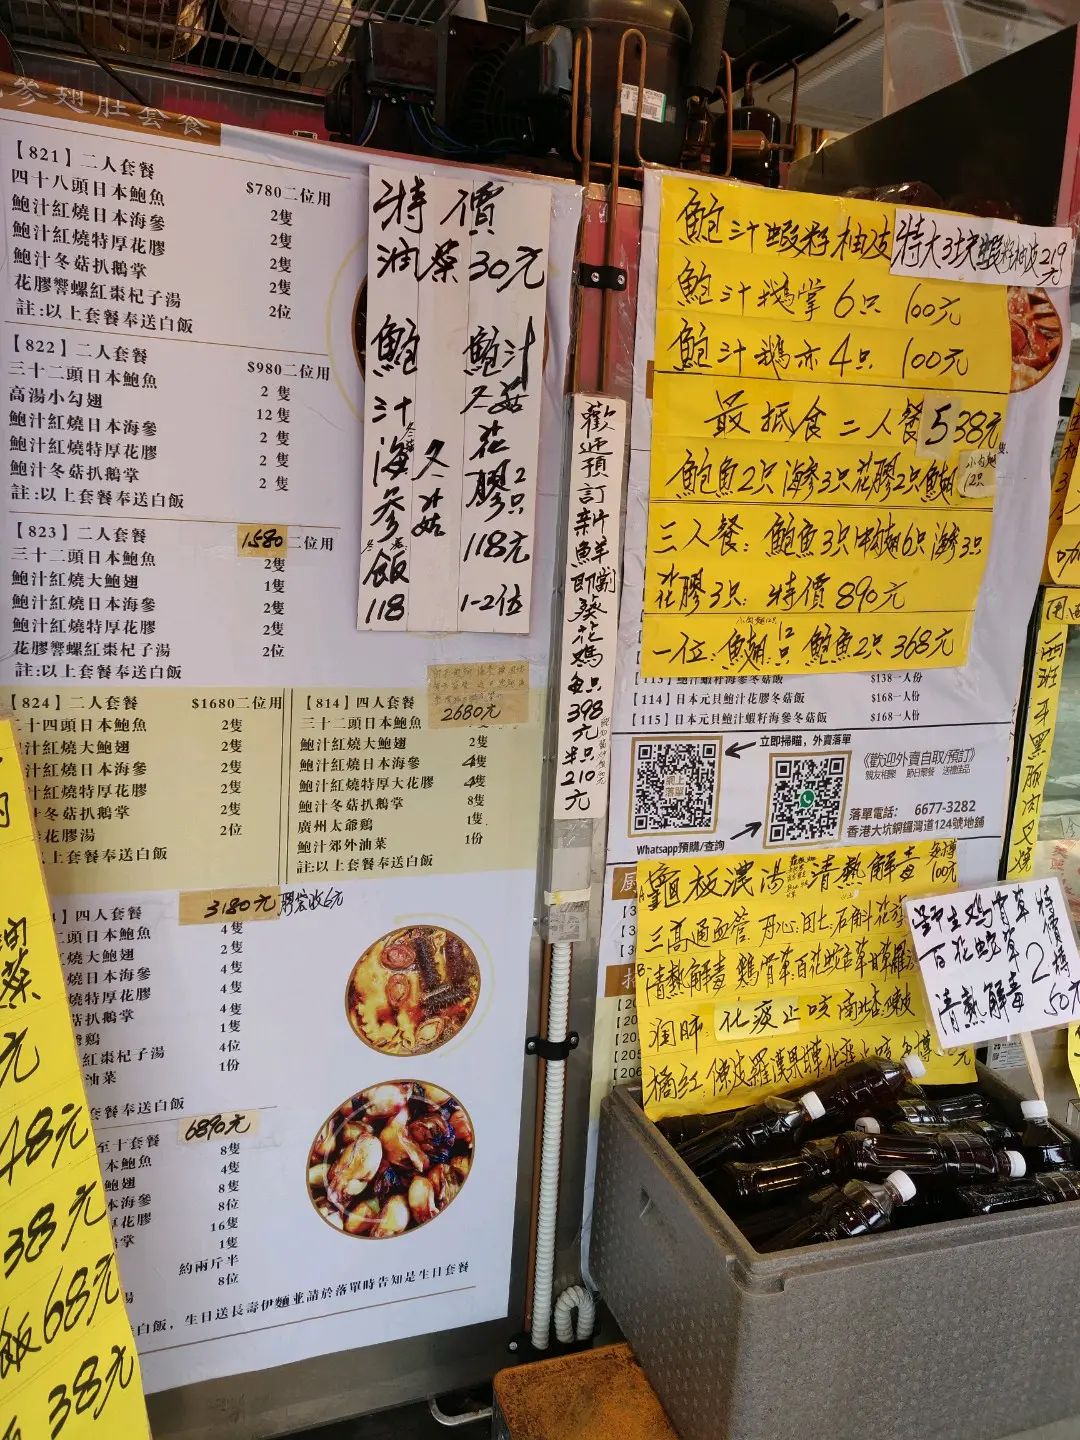 參翅肚套餐
【821】二人套餐
$780二位用
四十八頭日本鮑魚 2隻
鮑汁紅燒日本海參 2隻
鮑汁紅燒特厚花膠 2隻
鮑汁冬菇扒鵝掌 2隻
花膠響螺紅棗杞子湯 2位
註:以上套餐奉送白飯
【822】二人套餐
$980二位用
三十二頭日本鮑魚 2隻
高湯小勾翅 12隻
鮑汁紅燒日本海參 2隻
鮑汁紅燒特厚花膠 2隻
鮑汁冬菇扒鵝掌 2隻
註:以上套餐奉送白飯
【823】二人套餐 1580二位用
三十二頭日本鮑魚 2隻
鮑汁紅燒大鮑翅 1隻
鮑汁紅燒日本海參 2隻
鮑汁紅燒特厚花膠 2隻
花膠響螺紅棗杞子湯 2位
註:以上套餐奉送白飯
【824】二人套餐 $1680二位用
二十四頭日本鮑魚 2隻
紅燒大鮑翅 2隻
紅燒日本海參 2隻
汁紅燒特厚花膠 2隻
冬菇扒鵝掌 2隻
花膠湯 2位
以上套餐奉送白飯
【814】四人套餐
2680元
三十二頭日本鮑魚
鮑汁紅燒大鮑翅 2隻
鮑汁紅燒日本海參 4隻
鮑汁紅燒特厚大花膠 4隻
鮑汁冬菇扒鵝掌 8隻
廣州太爺鷄 1隻
鮑汁郊外油菜 1份
註:以上套餐奉送白飯
】四人套餐 3180元 膠袋收6元
頭日本鮑魚 4隻
大鮑翅 2隻
燒日本海參 4隻
燒特厚花膠 4隻
菇扒鵝掌 4隻
鷄 1隻
紅棗杞子湯 4位
油菜 1份
套餐奉送白飯
至十套餐 6890元
本鮑魚 8隻
鮑翅 4隻
本海參 8隻
厚花膠 8位
鵝掌 16隻
1隻
約兩斤半
湯 8位
白飯，生日送長壽伊麵並請於落單時告知是生日套餐
特價
油菜30元
鮑汁海參飯
冬菇
118
鮑汁
冬菇
花膠2只
118元
1-2位
歡迎預訂新鮮即劏葵花鷄
每只398元
半只210元
鮑汁蝦籽柚皮
特大3塊蝦籽柚皮219元
鮑汁鵝掌6只 100元
鮑汁鵝亦4只 100元
最抵食二人餐538元
鮑魚2只海參3只花膠2只魚翅
12只
三人餐:鮑魚3只中勾翅6只海參3只
花膠3只:特價890元
一位:魚翅12只鮑魚2只368元
【113】日本元貝鮑汁蝦籽海參飯 $138一人份
【114】日本元貝鮑汁花膠冬菇飯 $168一人份
【115】日本元貝鮑汁蝦籽海參冬菇飯 $168一人份
立即掃瞄，外賣落單
網上落單
《歡迎外賣自取/預訂》
親友相聚 節日聚餐 送禮佳品
落單電話： 6677-3282
香港大坑銅鑼灣道124號地舖
Whatsapp預購/查詢
龜板濃湯 清熱解毒 每樽100元
三高通血管
清熱解毒 雞骨草:百花蛇舌草
潤肺: 化痰止咳南北杏陳皮
橘紅:陳皮羅漢果
雞骨草
百花蛇草
清熱解毒
特價2樽50元
油菜
元
48元
38元
飯68元
38元
西班牙黑豚肉叉燒